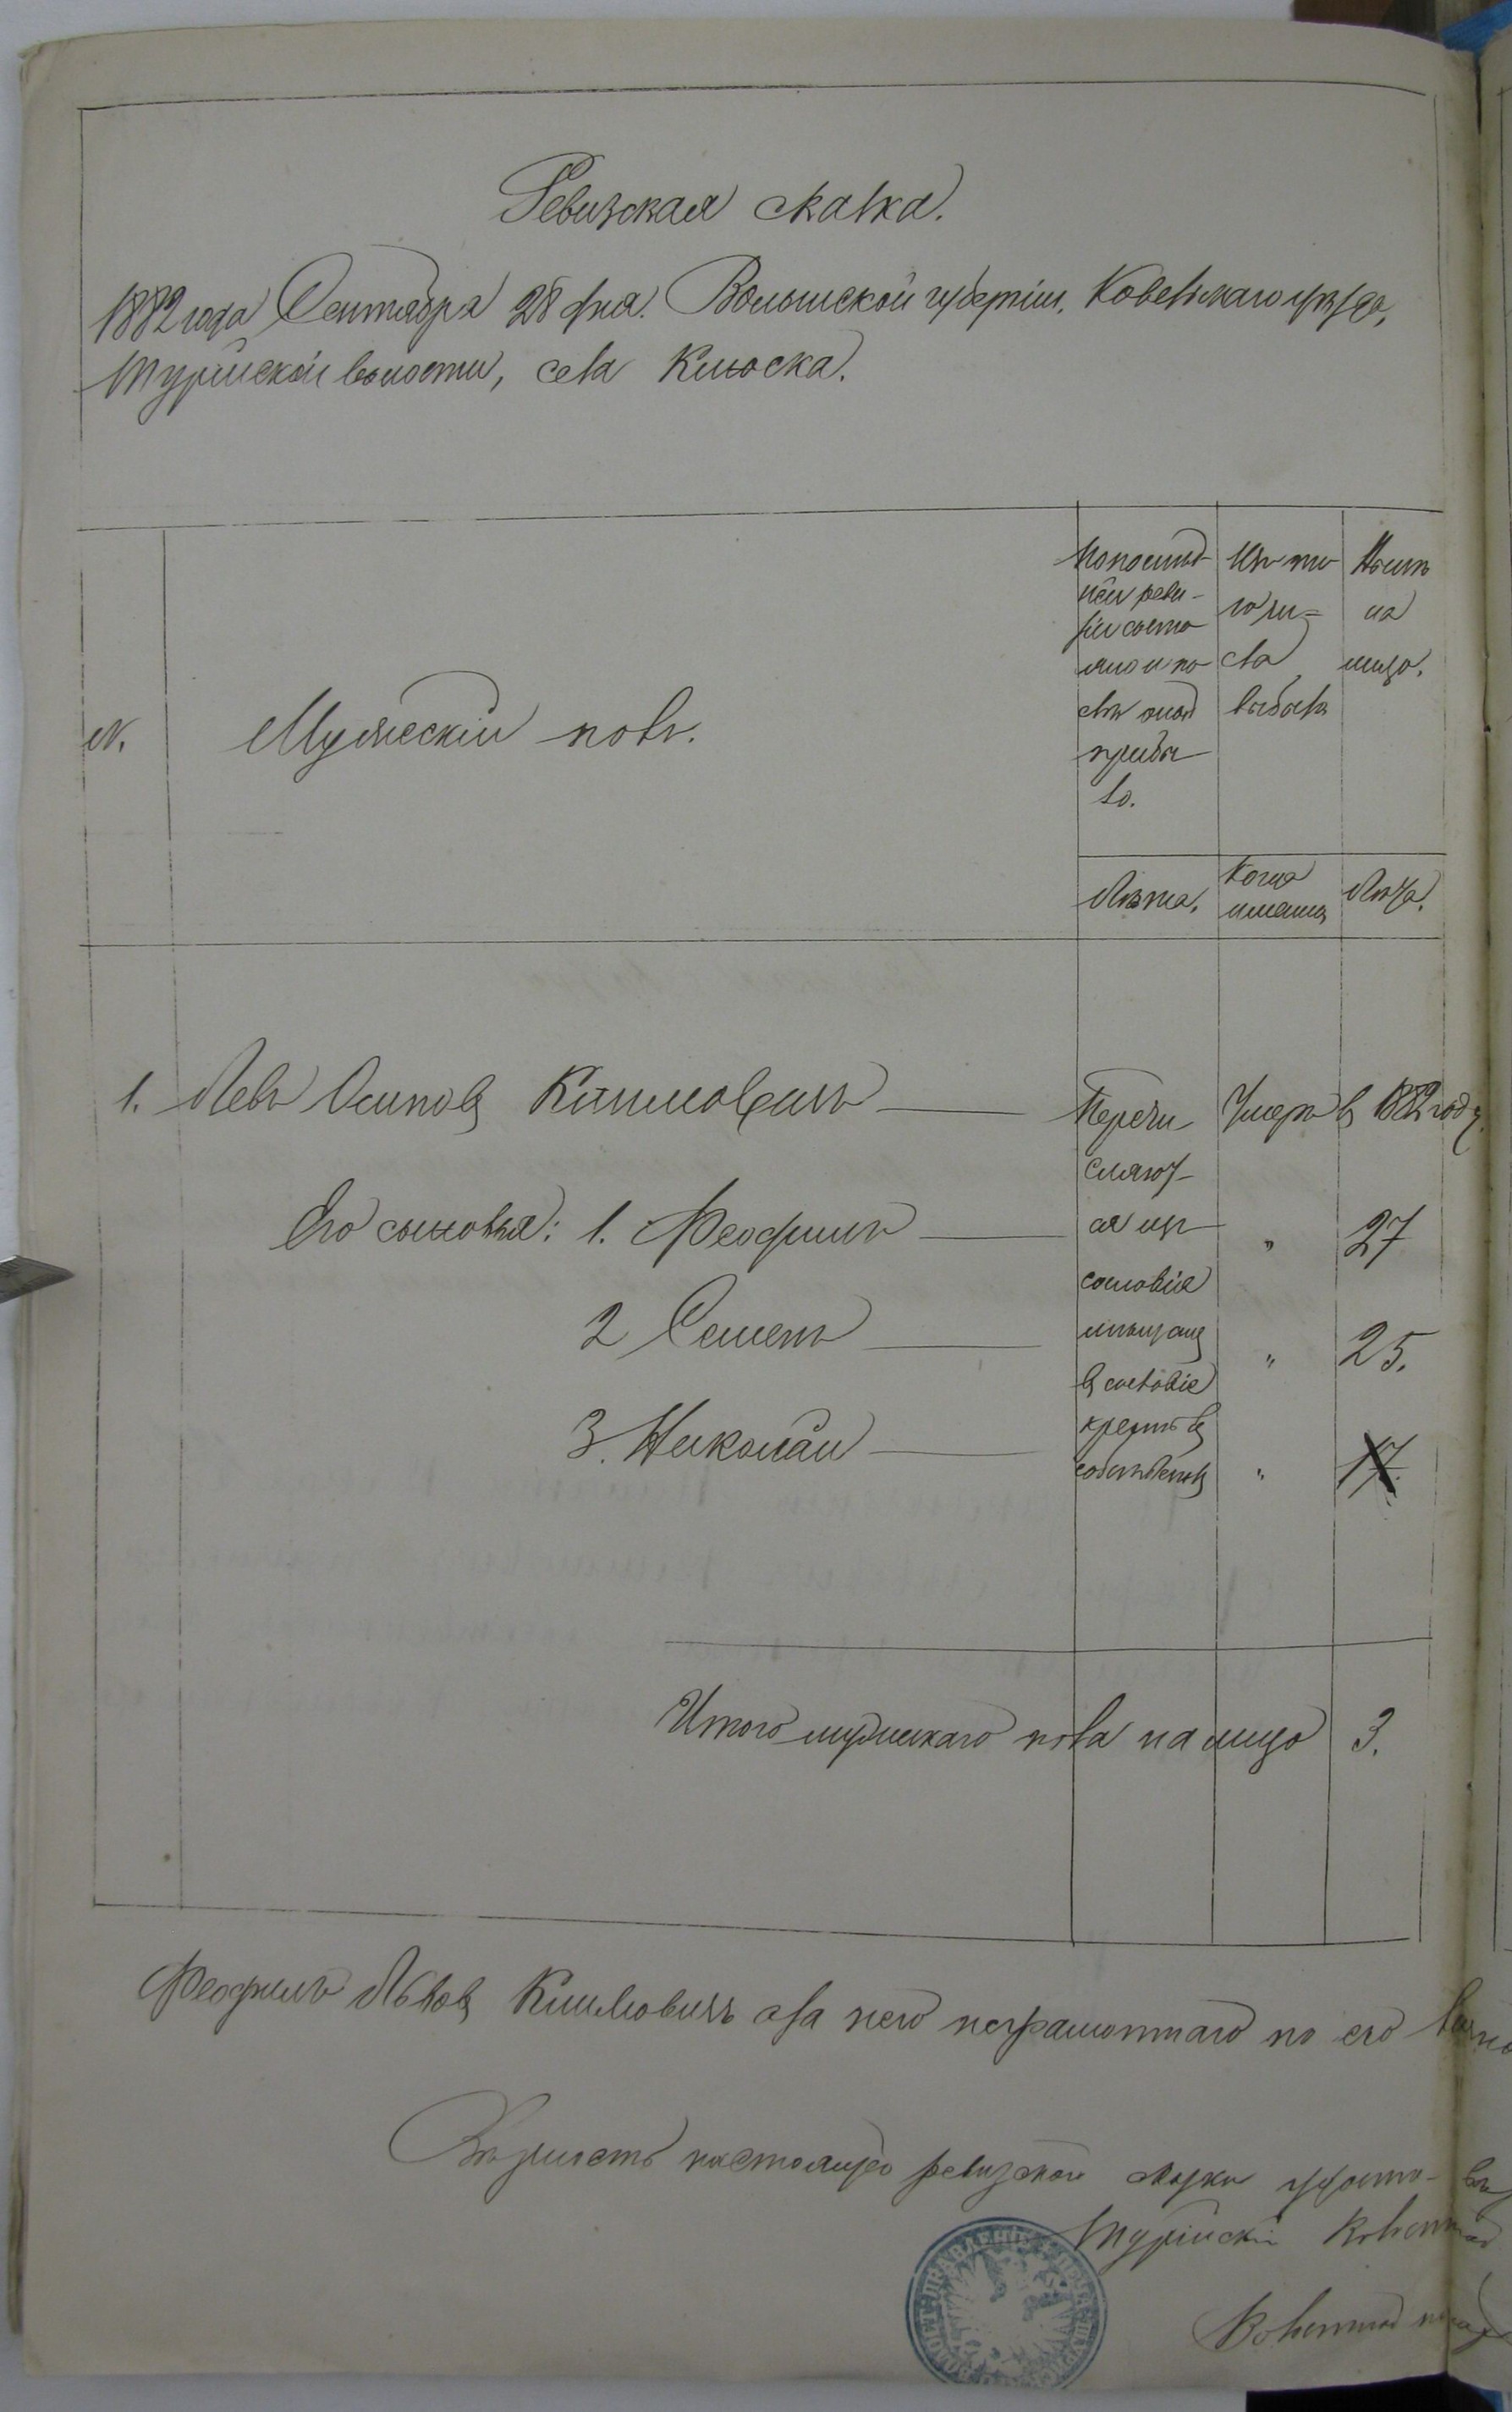 Ревизская сказка.
1882 года Сентября 28 дня. Волынской губерніи, Ковельскаго уѣзда,
Турійской волости, села Клюска.
№.
Мужескій полъ.
По послѣд-
ней реви-
зіи состо
яло и по
слѣ оной
прибы
ло.
Изъ то
го чи=
сла
выбыло
Нынѣ
на
лицо.
Лѣта.
Когда
именно
Лѣта.
1. Левъ Осиповъ Климовичъ
Перечи
сляют-
ся изъ
сословія
мѣщанъ
въ сословіе
крестьянъ
собственниковъ
Умеръ въ 1882 году.
Его сыновья: 1. Феофилъ " 27
2 Семенъ " 25.
3. Николай " 17.
Итого мужескаго пола на лицо 3.
Феофилъ Львовъ Климовичъ а за него неграмотнаго по его
Вѣрность настоящей ревизской сказки удосто-
Турійскій Волостной
Волостной